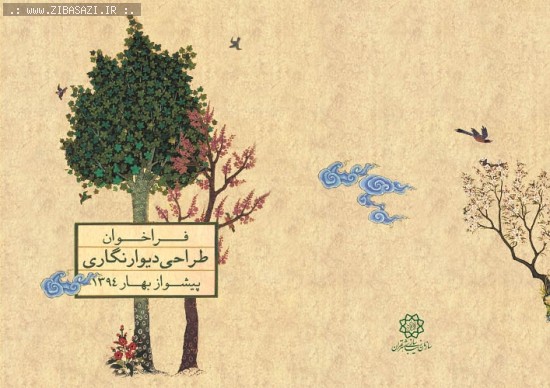 .: www.ZIBASAZI.IR :.
فراخوان
طراحی دیوارنگاری
پیشواز بهار ۱۳۹۴
سازمان زیباسازی شهر تهران